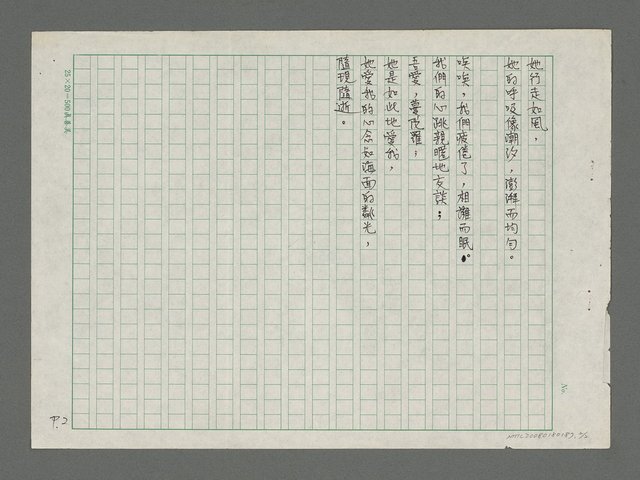 她行走如風，
她的呼吸像潮汐，澎湃而均勻。
唉唉，我們疲倦了，相擁而眠。
我們的心跳親暱地交談；
吾愛，曼陀羅；
她是如此地愛我，
她愛我的心念如海面的粼光，
隨現隨逝。
25×20=500
No.
P.2
NMTL20080180187